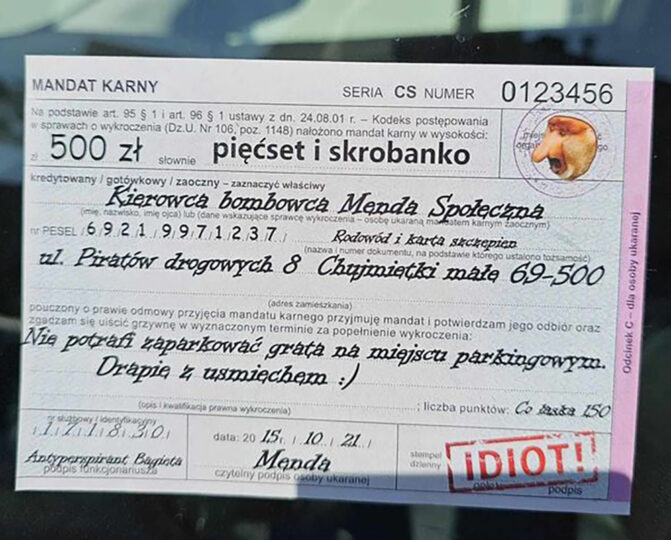 MANDAT KARNY SERIA CS NUMER 0123456
Na podstawie art. 95 § 1 i art. 96 § 1 ustawy z dn. 24.08.01 r. – Kodeks postępowania
w sprawach o wykroczenia (Dz.U. Nr 106, poz. 1148) nałożono mandat karny w wysokości:
zł 500 zł słownie pięćset i skrobanko
kredytowany / gotówkowy / zaoczny – zaznaczyć właściwy
Kierowca bombowca Menda Społeczna
(imię, nazwisko, imię ojca) lub (dane wskazujące sprawcę wykroczenia – osobę ukaraną mandatem karnym zaocznym)
nr PESEL / 6 9 2 1 9 9 7 1 2 3 7 / Rodowód i karta szczepien
(nazwa i numer dokumentu, na podstawie którego ustalono tożsamość)
ul. Piratów drogowych 8 Chujmiętki małe 69-500
(adres zamieszkania)
pouczony o prawie odmowy przyjęcia mandatu karnego przyjmuję mandat i potwierdzam jego odbiór oraz
zgadzam się uiścić grzywnę w wyznaczonym terminie za popełnienie wykroczenia:
Nie potrafi zaparkować grata na miejscu parkingowym.
Drapie z usmięchem :)
(opis i kwalifikacja prawna wykroczenia) ; liczba punktów: Co łaska 150
nr służbowy / identyfikacyjny
/ 1 / 7 / 1 / 8 / 3 / 0 / data: 20 15 r. / 10 / 21 / stempel
dzienny IDIOT!
Antyperspirant Bagieta Menda
podpis funkcjonariusza czytelny podpis osoby ukaranej podpis
Odcinek C – dla osoby ukaranej